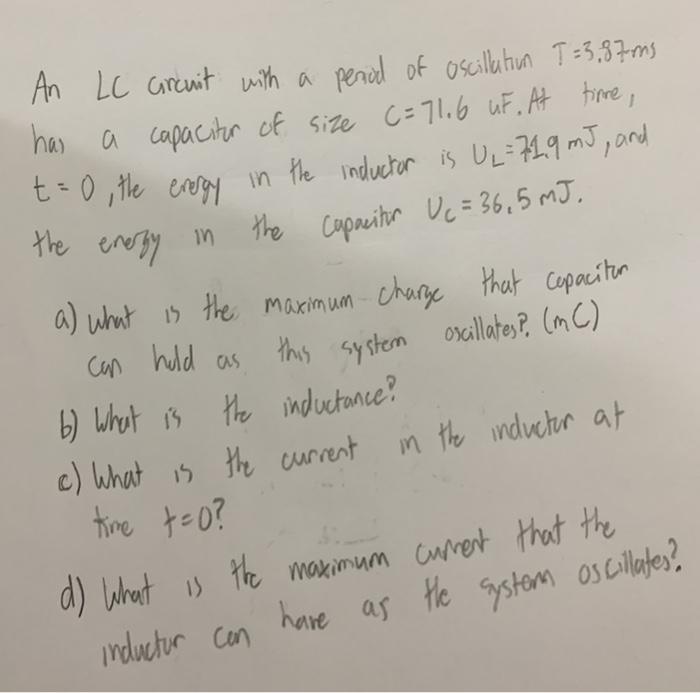 An LC circuit with a period of oscillation T=3.87ms
has a capacitor of size C=71.6 uF. At time,
t=0, the energy in the inductor is UL=71.9 mJ, and
the energy in the capacitor Uc=36.5 mJ.
a) what is the maximum charge that capacitor
can hold as this system oscillates?. (mC)
b) What is the inductance?
c) What is the current in the inductor at
time t=0?
d) What is the maximum current that the
inductor can have as the system oscillates?